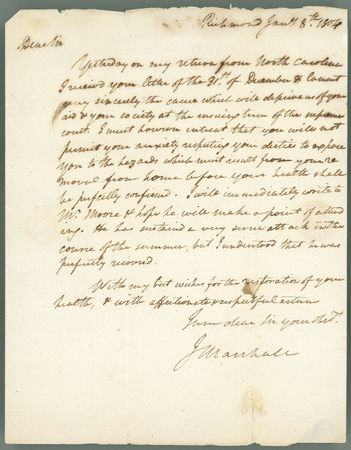 Richmond Jany. 8th. 1804
Dear Sir
Yesterday on my return from North Carolina
I receivd your letter of the 31st. of December & lament
very sincerely the cause which will deprive us of your
aid & your society at the ensuing term of the supreme
court. I must however intreat that you will not
permit your anxiety respecting your duties to expose
you to the hazards which must result from your re
moval from home before your health shall
be perfectly confirmed. I will immediately write to
Mr. Moore & hope he will make a point of attend
ing. He has sustained a very severe attack in the
course of the summer, but I understood that he was
perfectly recovered.
With my best wishes for the restoration of your
health, & with affectionate & respectful esteem
I am dear Sir your obedt.
J Marshall